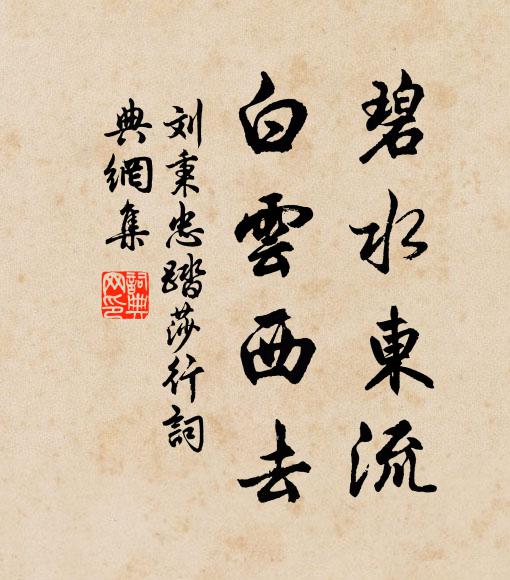 碧水東流
白雲西去
刘秉忠踏莎行詞
典網集
詞典网印